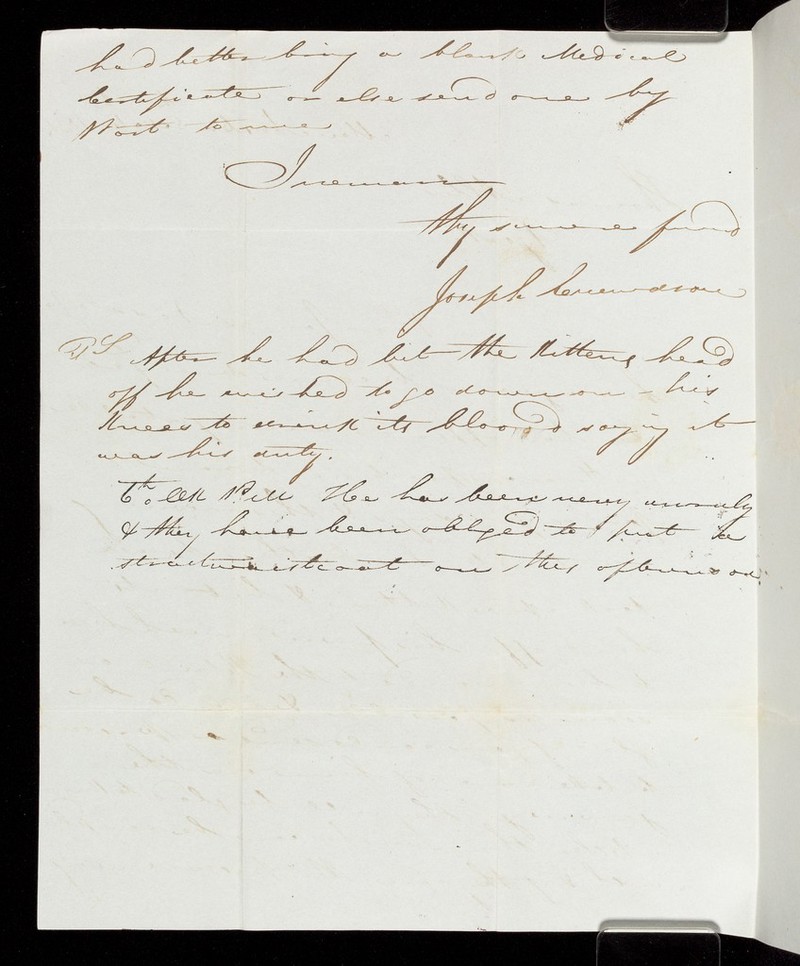 had better bring a blank Medical
Certificate or else send one by
Post to me
I remain
thy sincere friend
Joseph Crewdson
PS After he had bit the Kittens head
off he wished to go down on his
Knees to drink its blood saying it
was his duty.
6th. He has been very unruly
& they have been obliged to put a
straitwaistcoat on this afternoon